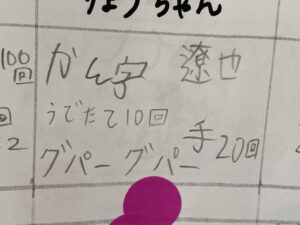 りょうちゃん
100
回
かん字 遼也
うでたて10回
回
×2
グパーグパー手20回